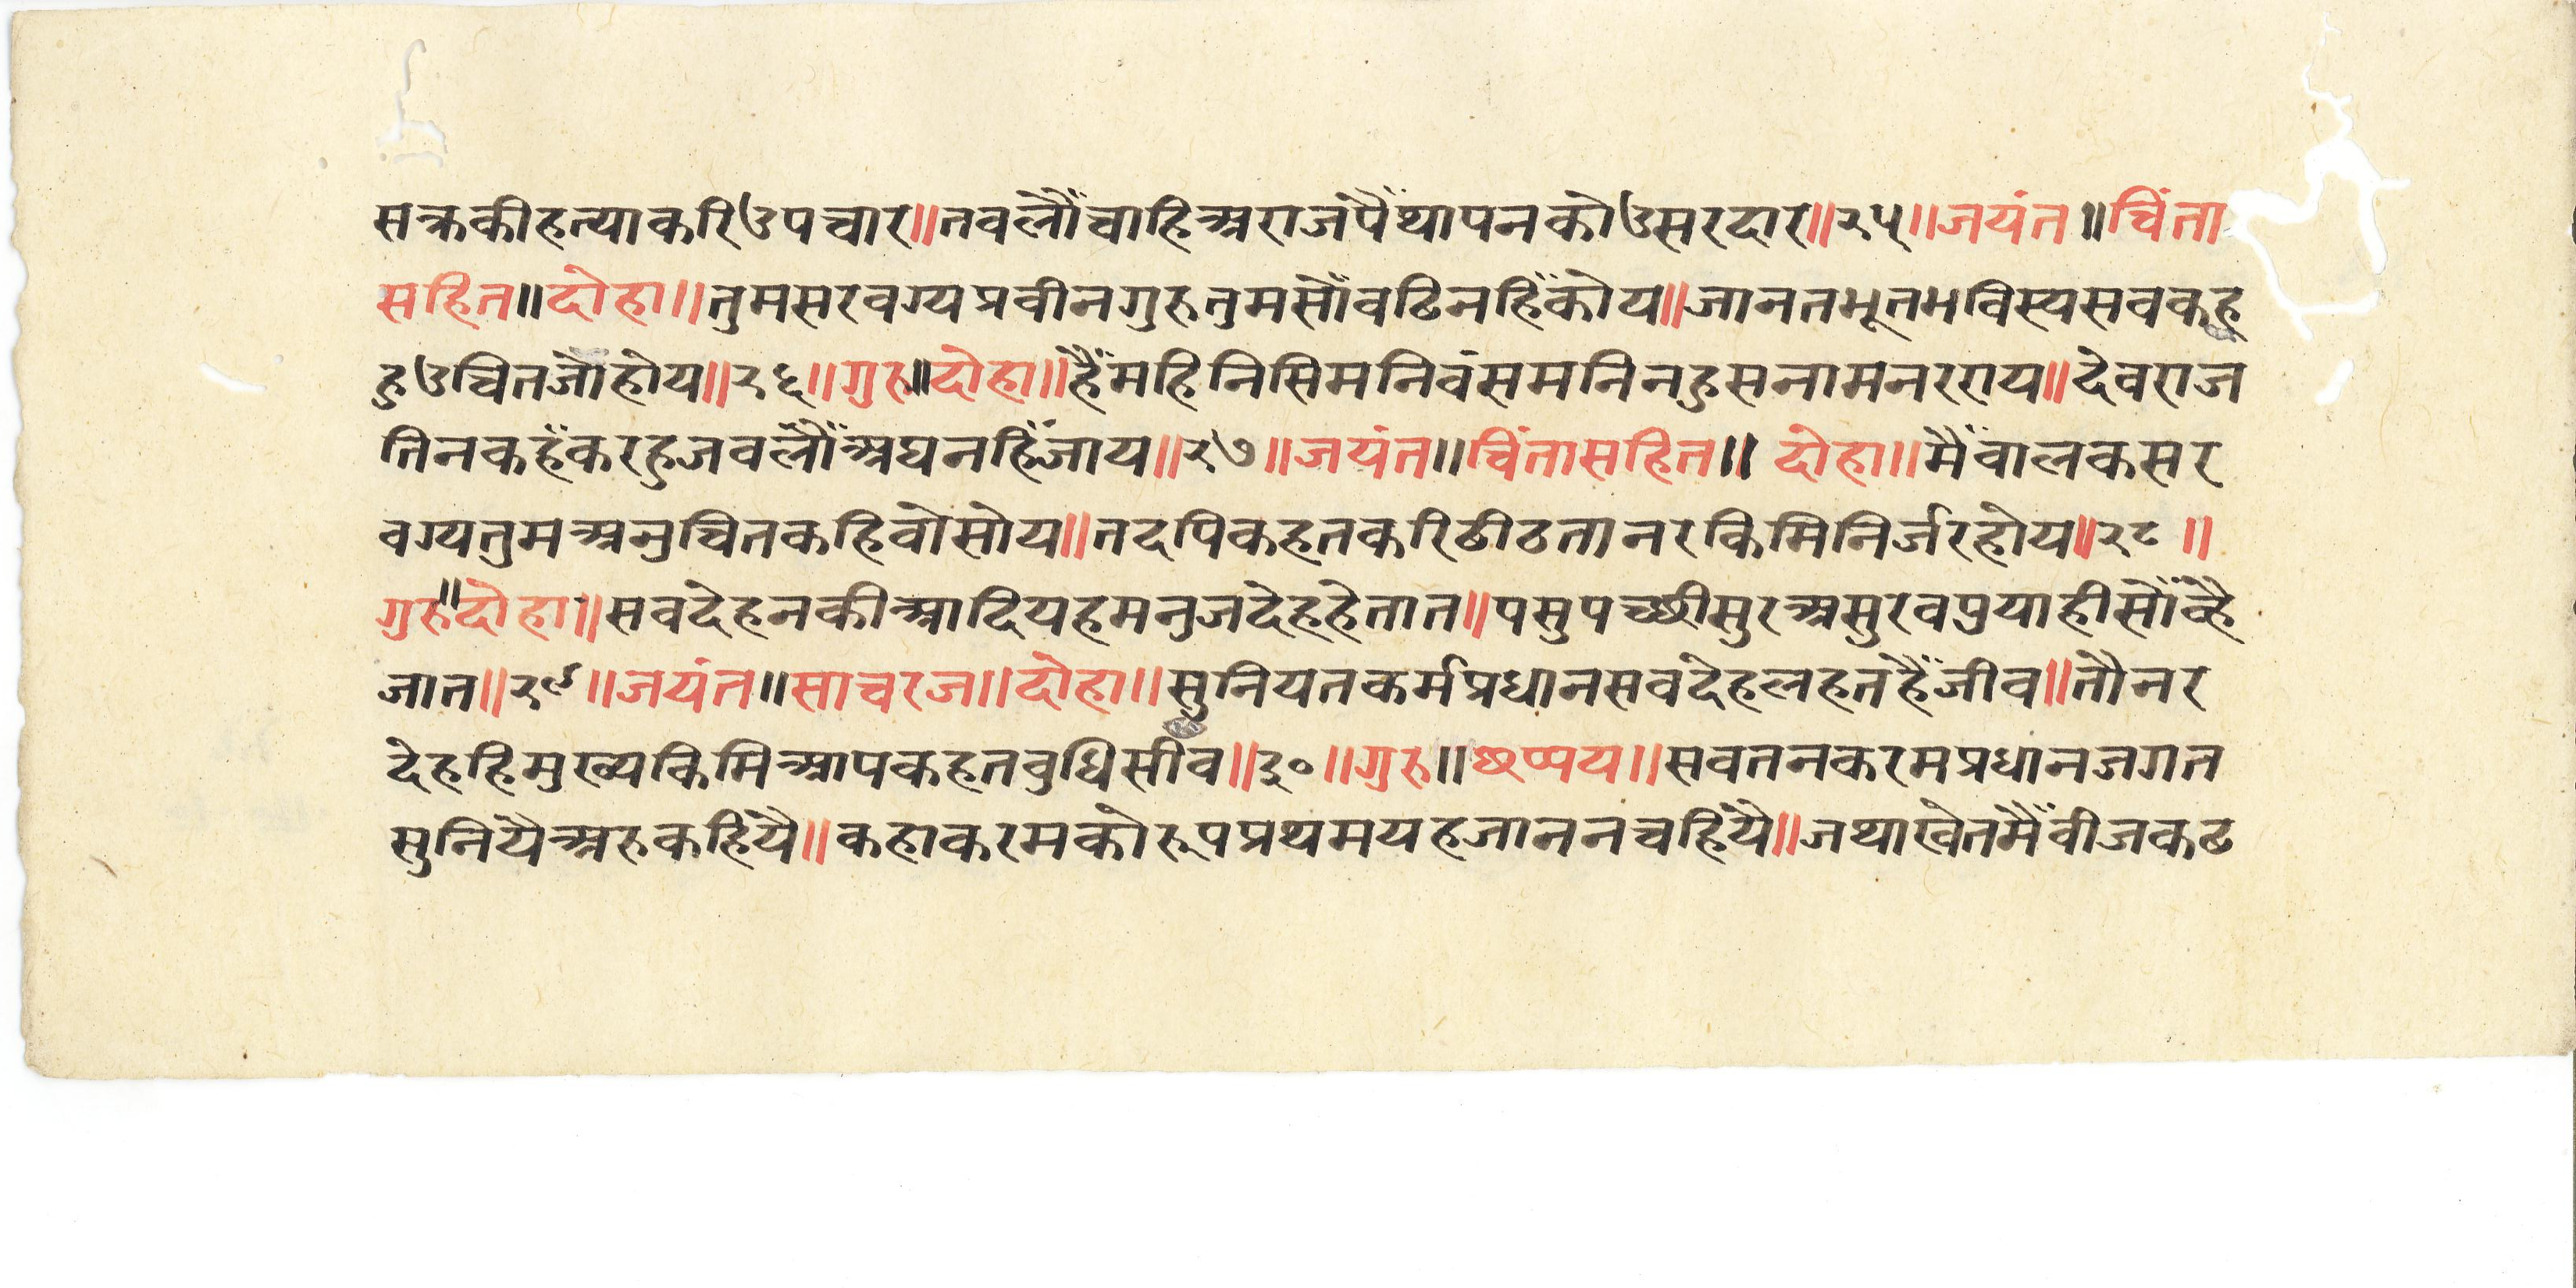 सक्रकीहत्याकरिउपचार॥तवलौंचाहिअराजंपैंथापनकोउसरदार॥२५॥जयंत॥चिंता
सहित॥दोहा॥तुमसरवग्यप्रवीनगुरुतुमसोंवढिनहिंकोय॥जानतभूतभविस्यसवकहू
हुउचितजोहोय॥२६॥गुरु॥दोहा॥हैंमहिनिसिमनिवंसमनिनहुसनामनरराय॥देवराज
तिनकहंकरहुजवलौंअघनहिंजाय॥२७॥जयंत॥चिंतासहित॥ दोहा॥मैंवालकसर
वग्यतुमअनुचितकहिवोसोय॥तदपिकहतकरिढीठतानरकिमिनिर्जरहोय॥२८॥
गुरु॥दोहा॥सवदेहनकीआदियहमनुजदेहहेतात॥पसुपच्छीसुरअसुरवपुयाहीसोंव्है
जात॥२९॥जयंत॥साचरज॥दोहा॥सुनियतकर्मप्रधानसवदेहलहतहैंजीव॥तौनर
देहहिमुख्यकिमिआपकहतवुधिसींव॥३०॥गुरु॥छप्पय॥सवतनकरमप्रधानजगत
सुनियैअरुकहियै॥कहाकरमकोरूपप्रथमयहजाननचहियै॥जथाखेतमैंवीजकढ